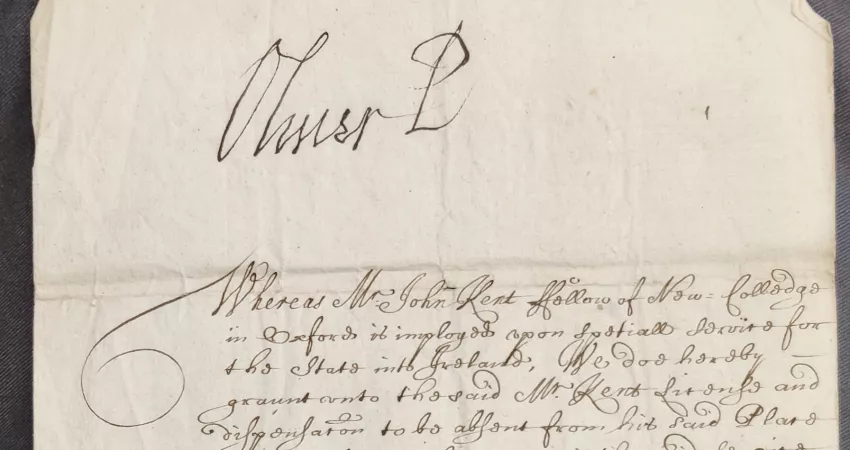 Oliver P
Whereas Mr. John Kent ffellow of New=Colledge
in Oxford is imployed upon Spetiall Service for
the State into Ireland, We doe hereby
graunt unto the said Mr. Kent License and
dispensacon to be absent from his said Place